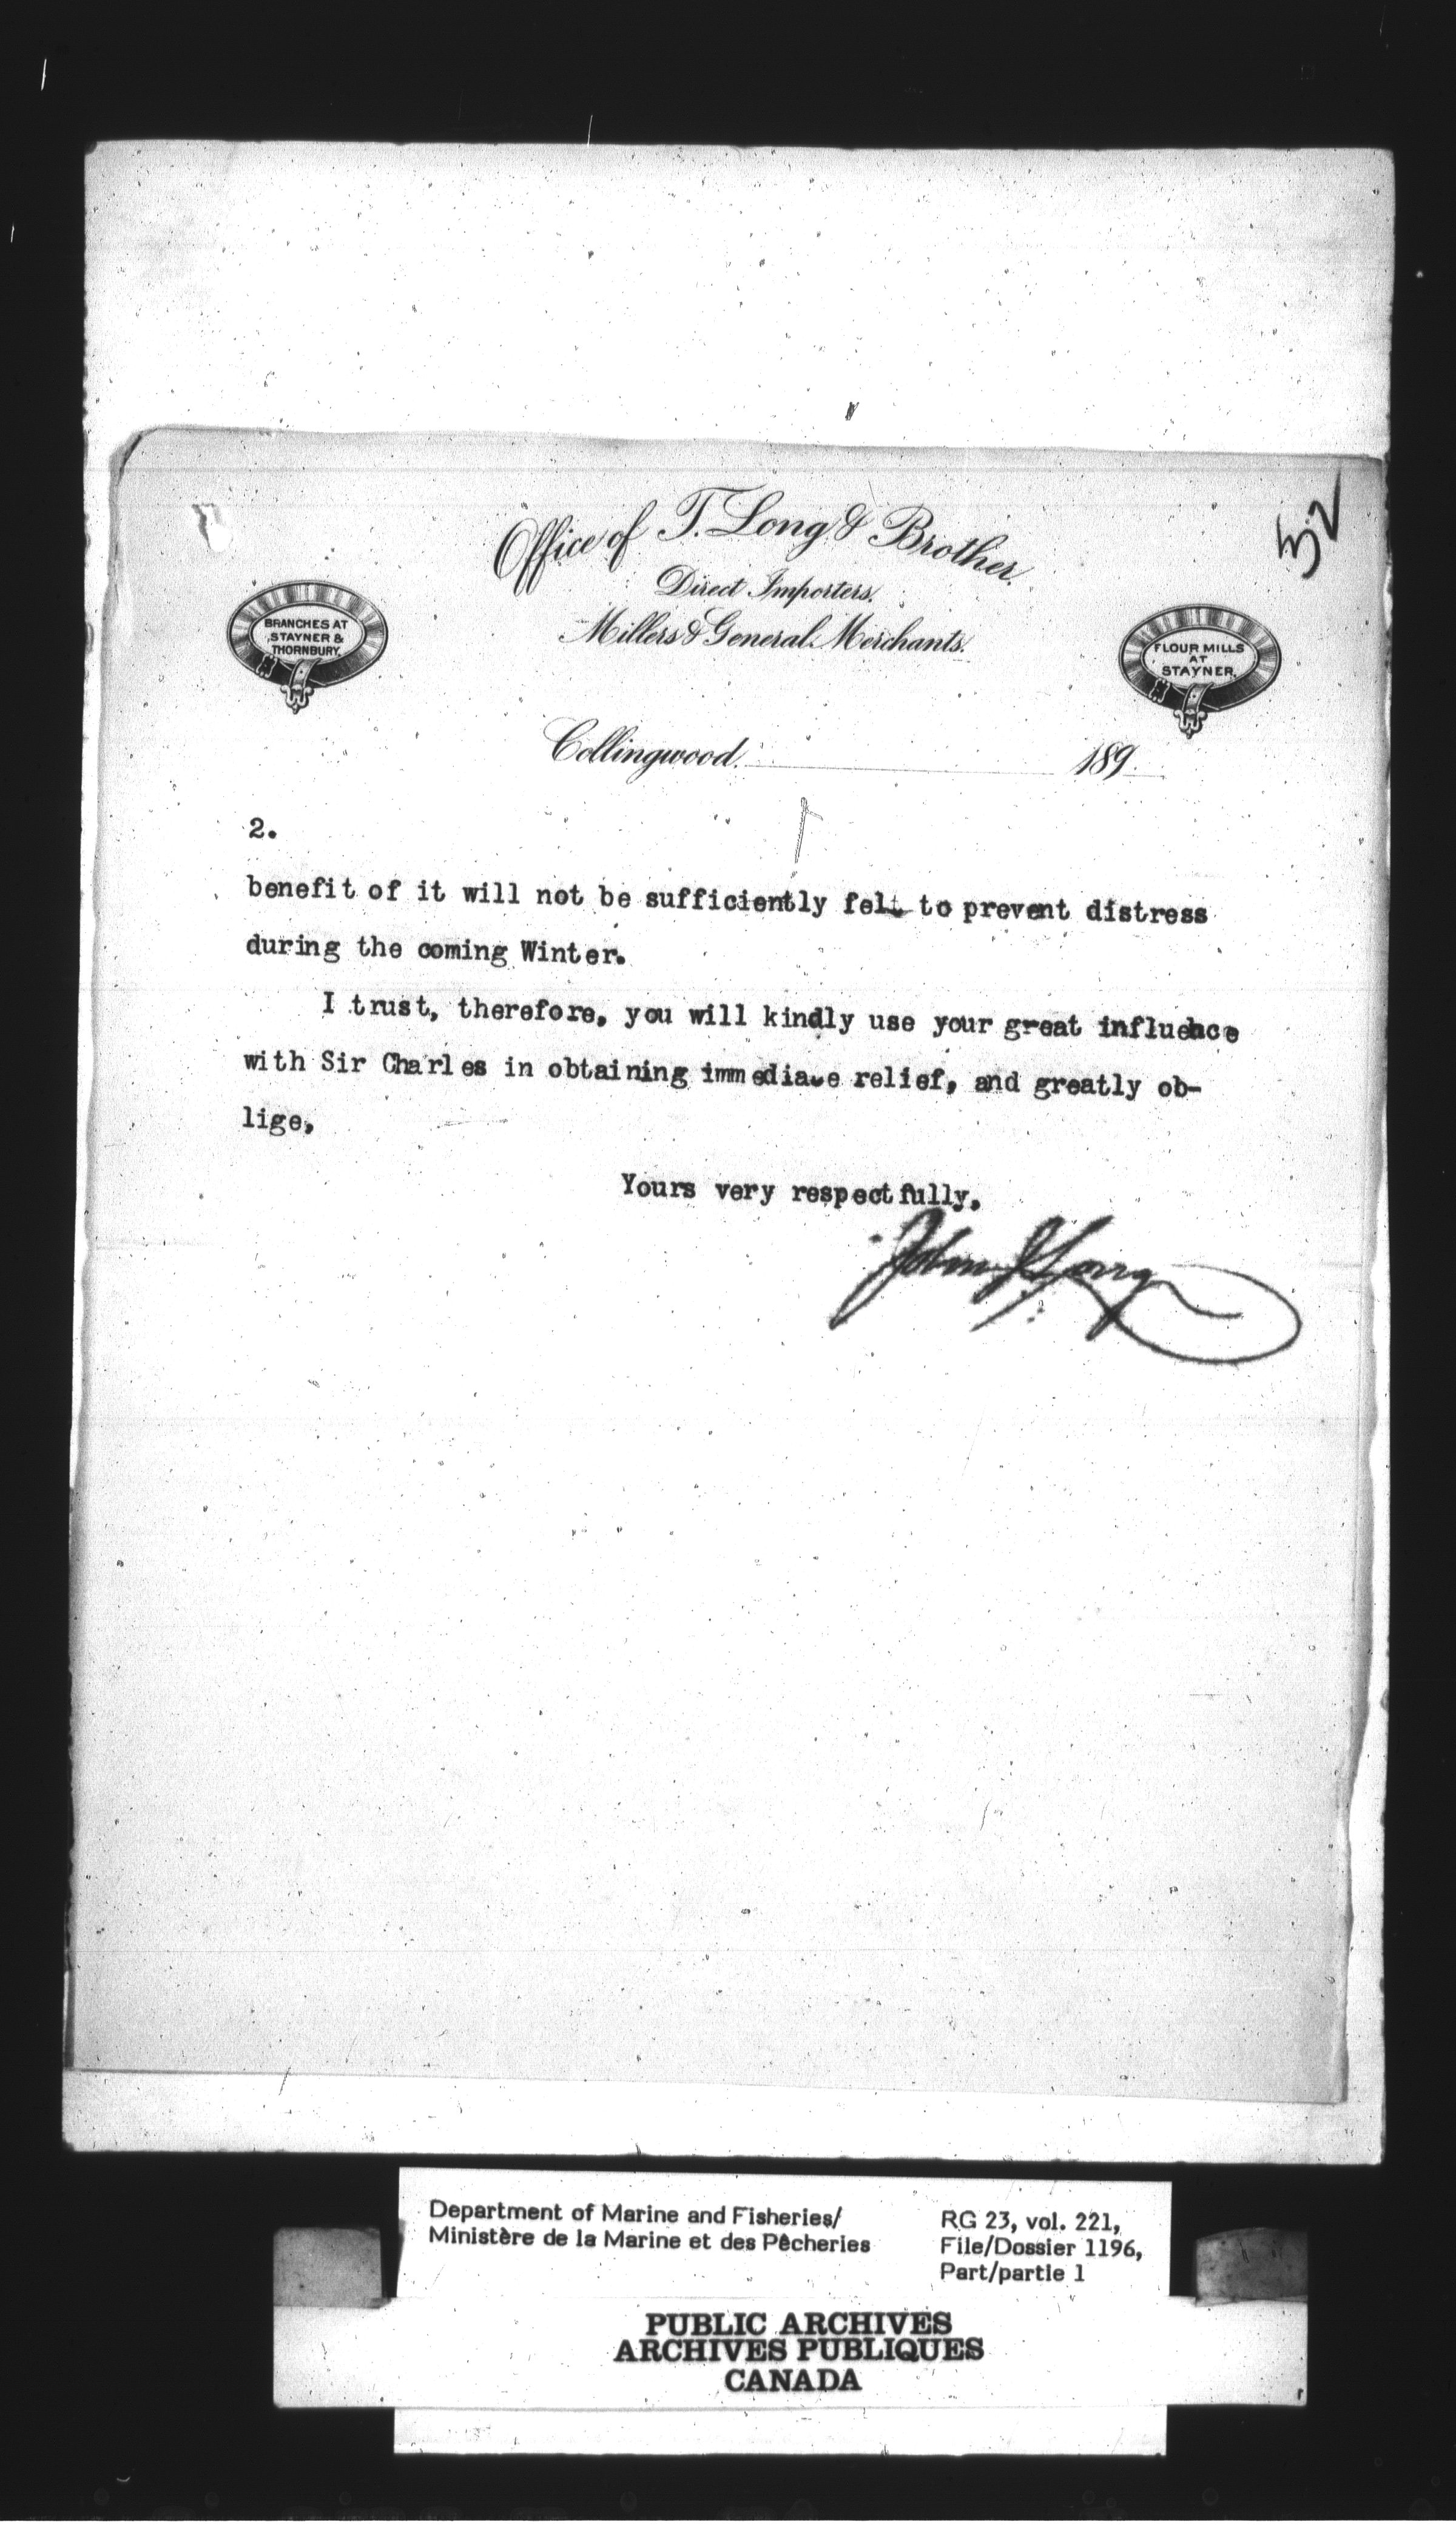 52
Office of T. Long & Brother.
Direct Importers,
Millers & General Merchants.
BRANCHES AT
STAYNER &
THORNBURY.
FLOUR MILLS
AT
STAYNER.
Collingwood. 189
2.
benefit of it will not be sufficiently felt to prevent distress
during the coming Winter.
I trust, therefore, you will kindly use your great influence
with Sir Charles in obtaining immediate relief, and greatly ob-
lige,
Yours very respectfully,
John J Long
Department of Marine and Fisheries/
Ministère de la Marine et des Pêcheries
RG 23, vol. 221,
File/Dossier 1196,
Part/partie 1
PUBLIC ARCHIVES
ARCHIVES PUBLIQUES
CANADA